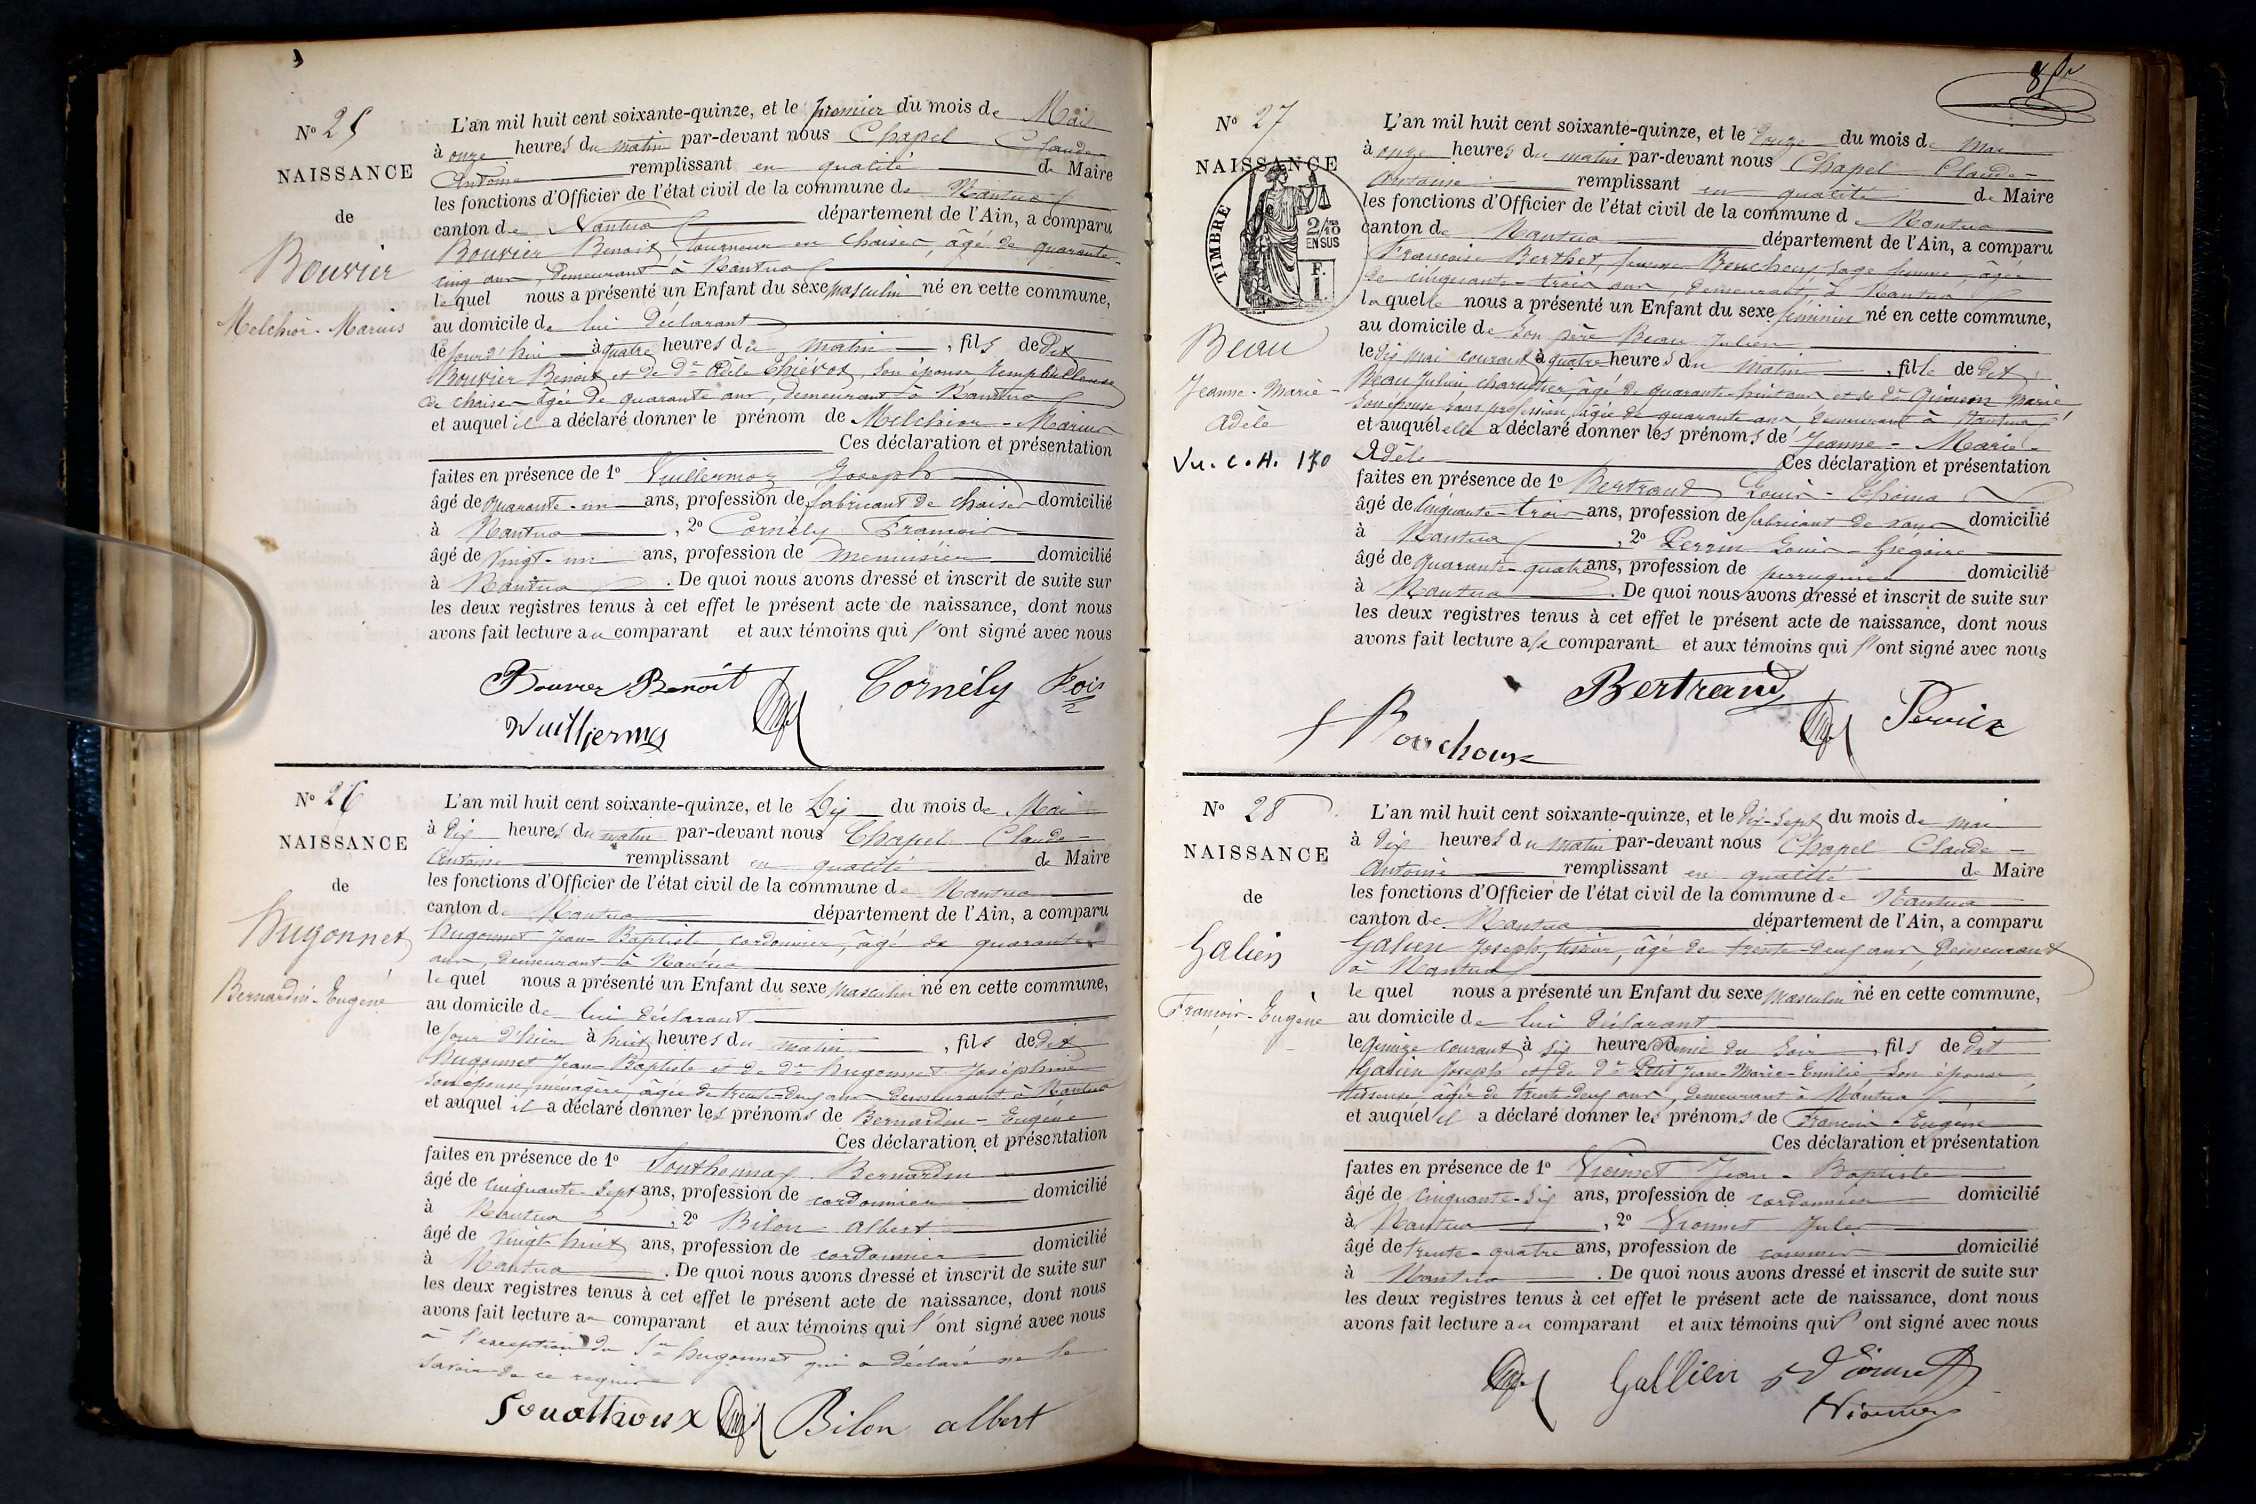 N° 25
NAISSANCE
de
Bouvier
Melchior-Marius
L'an mil huit cent soixante-quinze, et le premier du mois de Mai
à onze heures du matin par-devant nous Chapel Claude-
Antoine remplissant en qualité de Maire
les fonctions d'Officier de l'état civil de la commune de Nantua
canton de Nantua département de l'Ain, a comparu
Bouvier Benoit, tourneur en chaises, âgé de quarante-
cinq ans, demeurant à Nantua
lequel nous a présenté un Enfant du sexe masculin né en cette commune,
au domicile de lui déclarant
le jourd'hui à quatre heures du matin, fils de dit
Bouvier Benoit et de De Adèle Thiévoz, son épouse rempailleuse
de chaises âgée de quarante ans, demeurant à Nantua
et auquel il a déclaré donner le prénom de Melchior-Marius
Ces déclaration et présentation
faites en présence de 1° Vuillermoz Joseph
âgé de quarante-un ans, profession de fabricant de chaises domicilié
à Nantua, 2° Cornély François
âgé de vingt-un ans, profession de menuisier domicilié
à Nantua. De quoi nous avons dressé et inscrit de suite sur
les deux registres tenus à cet effet le présent acte de naissance, dont nous
avons fait lecture au comparant et aux témoins qui l'ont signé avec nous
Bouvier Benoît Cornély Fois
Vuillermoz
N° 26
NAISSANCE
de
Hugonnet
Bernardin-Eugène
L'an mil huit cent soixante-quinze, et le Dix du mois de Mai
à dix heures du matin par-devant nous Chapel Claude-
Antoine remplissant en qualité de Maire
les fonctions d'Officier de l'état civil de la commune de Nantua
canton de Nantua département de l'Ain, a comparu
Hugonnet Jean-Baptiste, cordonnier, âgé de quarante
ans, demeurant à Nantua
lequel nous a présenté un Enfant du sexe masculin né en cette commune,
au domicile de lui déclarant
le jour d'hier à huit heures du matin, fils de dit
Hugonnet Jean-Baptiste et de De Hugonnet Joséphine
son épouse, ménagère, âgée de trente-deux ans demeurant à Nantua
et auquel il a déclaré donner les prénoms de Bernardin-Eugène
Ces déclaration et présentation
faites en présence de 1° Bernardin
âgé de cinquante-sept ans, profession de cordonnier domicilié
à Nantua, 2° Bilon Albert
âgé de vingt-huit ans, profession de cordonnier domicilié
à Nantua. De quoi nous avons dressé et inscrit de suite sur
les deux registres tenus à cet effet le présent acte de naissance, dont nous
avons fait lecture au comparant et aux témoins qui l'ont signé avec nous
à l'exception du Sr Hugonnet qui a déclaré ne le
savoir de ce requis
Bilon albert
N° 27
NAISSANCE
TIMBRE
2/10
EN SUS
F.
1.
Beau
Jeanne-Marie-
Adèle
Vu. C. H. 170
L'an mil huit cent soixante-quinze, et le onze du mois de Mai
à onze heures du matin par-devant nous Chapel Claude-
Antoine remplissant en qualité de Maire
les fonctions d'Officier de l'état civil de la commune de Nantua
canton de Nantua département de l'Ain, a comparu
Françoise Berthet, femme Bouchoux sage femme, âgée
de cinquante-trois ans, demeurant à Nantua
laquelle nous a présenté un Enfant du sexe féminin né en cette commune,
au domicile de son père Beau Julien
le dix mai courant à quatre heures du matin, fille de dit
Beau Julien, charcutier, âgé de quarante-huit ans et de De Quinson Marie
son épouse sans profession, âgée de quarante ans demeurant à Nantua
et auquel elle a déclaré donner les prénoms de Jeanne-Marie-
Adèle Ces déclaration et présentation
faites en présence de 1° Bertrand Louis-Thoma
âgé de cinquante-trois ans, profession de fabricant de domicilié
à Nantua, 2° Perrin Louis-Grégoire
âgé de quarante-quatre ans, profession de perruquier domicilié
à Nantua. De quoi nous avons dressé et inscrit de suite sur
les deux registres tenus à cet effet le présent acte de naissance, dont nous
avons fait lecture à la comparante et aux témoins qui l'ont signé avec nous
Bertrand
Perrin
f Bouchoux
N° 28
NAISSANCE
de
Galien
François-Eugène
L'an mil huit cent soixante-quinze, et le dix-sept du mois de mai
à dix heures du matin par-devant nous Chapel Claude-
Antoine remplissant en qualité de Maire
les fonctions d'Officier de l'état civil de la commune de Nantua
canton de Nantua département de l'Ain, a comparu
Galien Joseph, tisseur, âgé de trente-deux ans demeurant
à Nantua
lequel nous a présenté un Enfant du sexe masculin né en cette commune,
au domicile de lui déclarant
le quinze courant à six heures demie du soir, fils de dit
Galien Joseph et de De Petit Jean-Marie-Emilie son épouse
tisseuse, âgée de trente-deux ans, demeurant à Nantua
et auquel il a déclaré donner les prénoms de François-Eugène
Ces déclaration et présentation
faites en présence de 1° Jean-Baptiste
âgé de cinquante-six ans, profession de cordonnier domicilié
à Nantua, 2° Jules
âgé de trente-quatre ans, profession de domicilié
à Nantua. De quoi nous avons dressé et inscrit de suite sur
les deux registres tenus à cet effet le présent acte de naissance, dont nous
avons fait lecture au comparant et aux témoins qui l'ont signé avec nous
Gallien